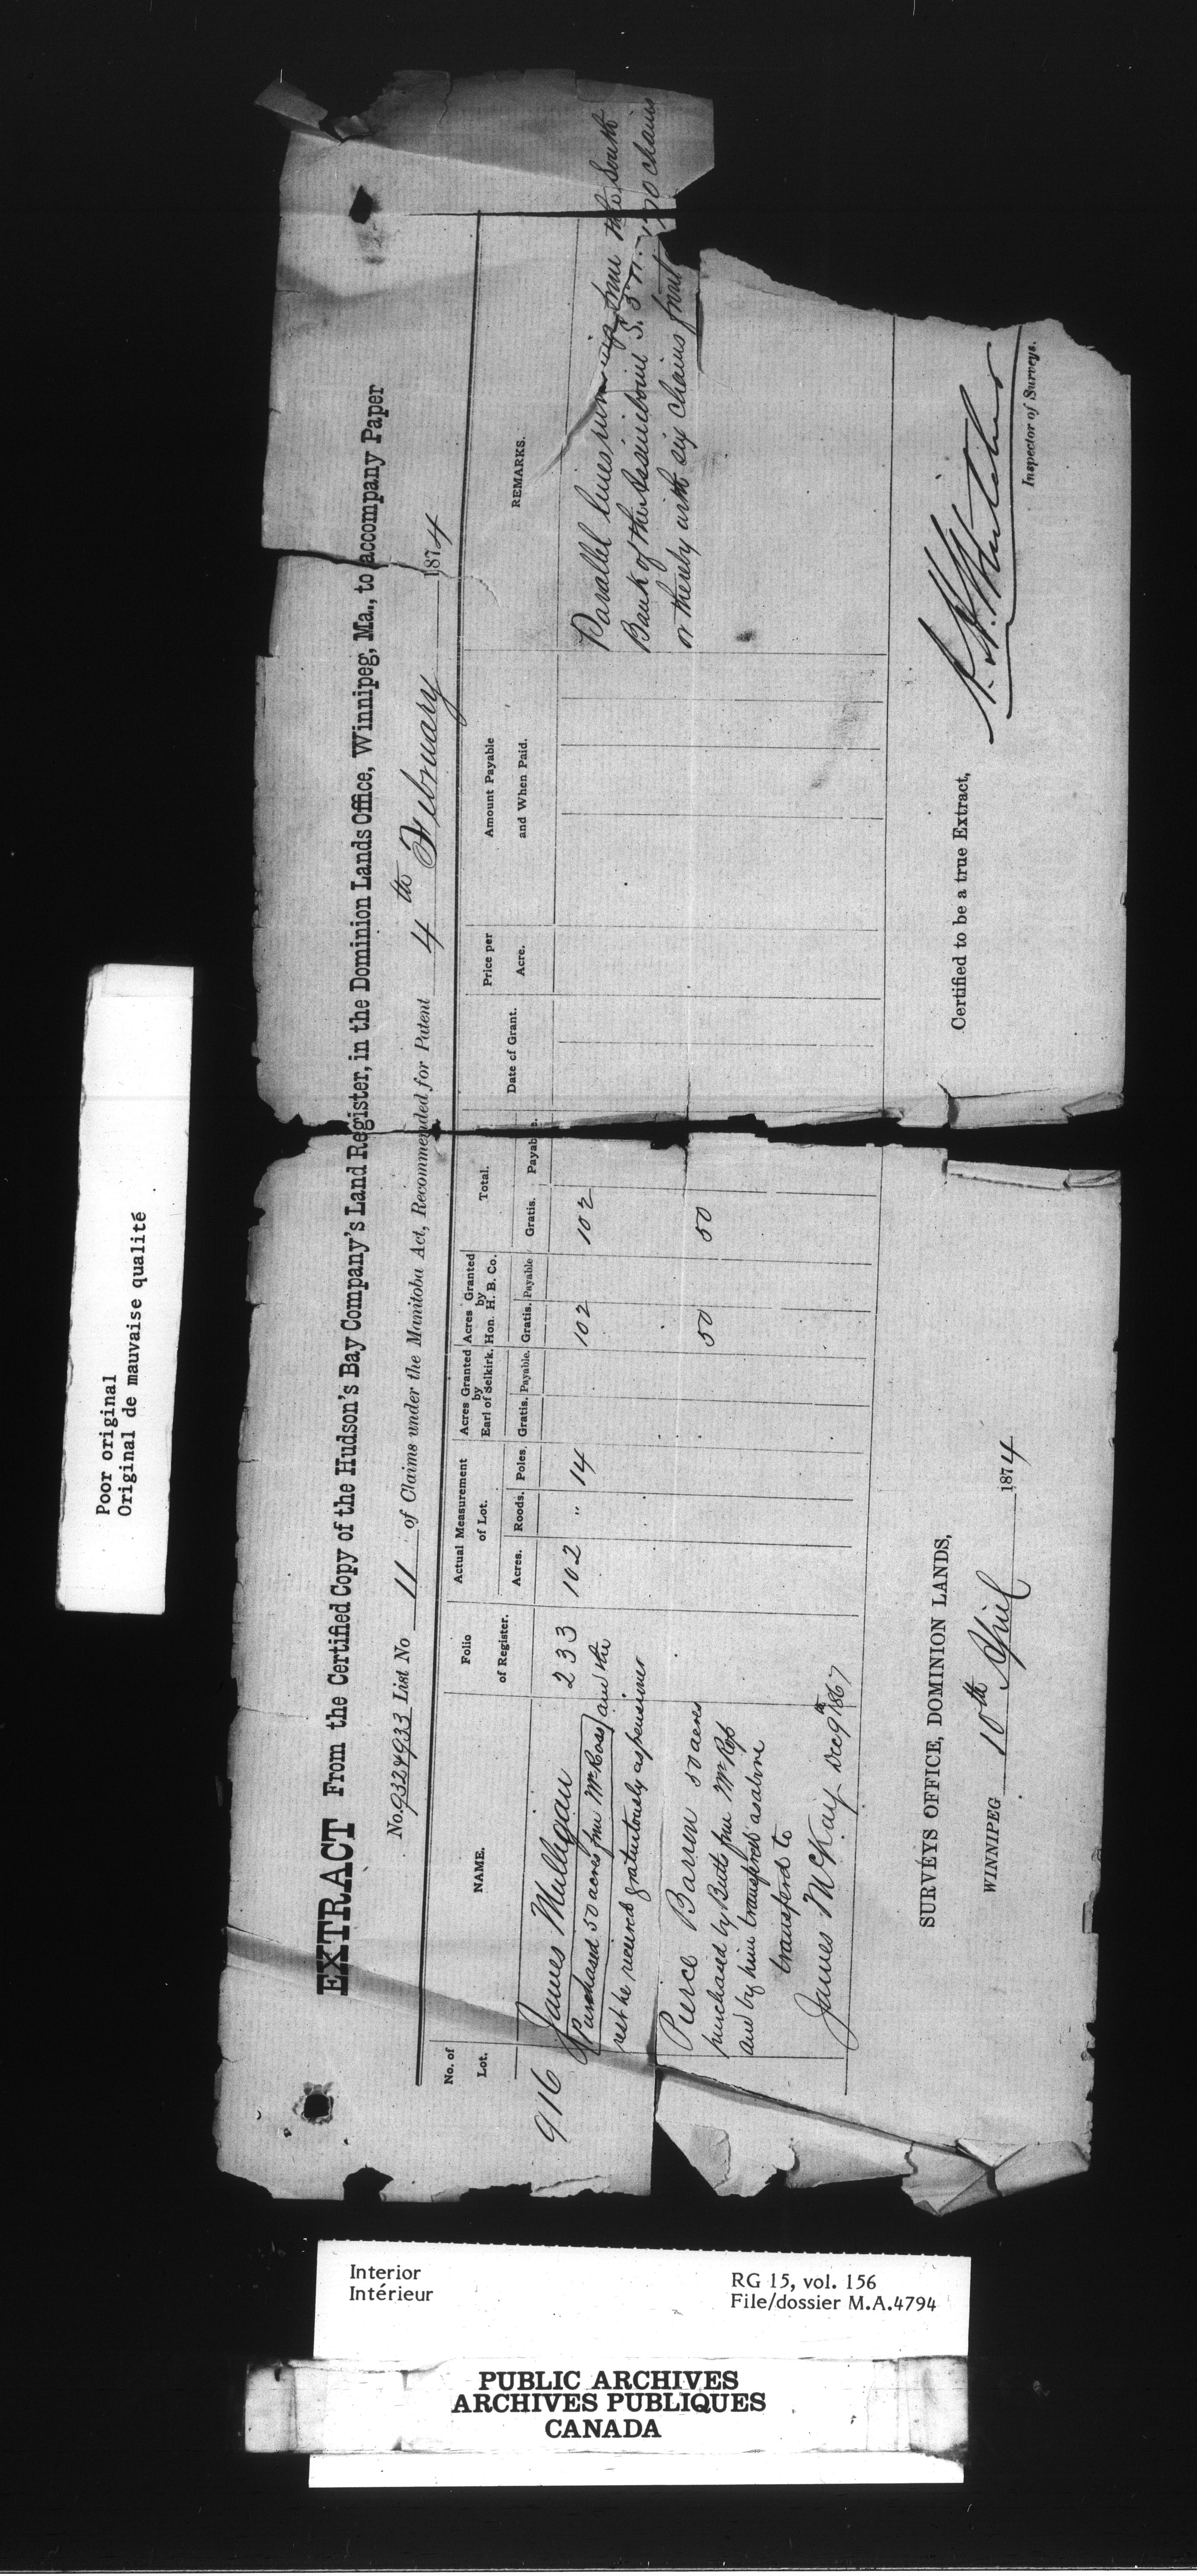 Poor original
Original de mauvaise qualité
EXTRACT From the Certified Copy of the Hudson's Bay Company's Land Register, in the Dominion Lands Office, Winnipeg, Ma., to accompany Paper
No. 932 4933 List No 11 of Claims under the Manitoba Act, Recommended for Patent 4th February 1874
No. of Lot.
NAME.
Folio of Register.
Actual Measurement of Lot.
Acres. Roods. Poles.
Acres Granted by Earl of Selkirk.
Gratis. Payable.
Acres Granted by Hon. H. B. Co.
Gratis. Payable
Total.
Gratis. Payable.
Date of Grant.
Price per Acre.
Amount Payable and When Paid.
REMARKS.
916 James Mulligan 233 102 " 14 102 102
Purchased 50 acres from Mr Ross and the
rest he received gratuitously as pensioner
Parallel lines running from the South
Bank of the Assiniboine S. 5 W. 170 chains
or thereby with six chains front
Pierce Barren 50 acres 50 50
purchased by Butts from Mr Ross
and by him transferred as above
transferred to
James McKay Dec 9th 1867
SURVEYS OFFICE, DOMINION LANDS,
WINNIPEG 10th April 1874
Certified to be a true Extract,
Inspector of Surveys.
Interior
Intérieur
RG 15, vol. 156
File/dossier M.A.4794
PUBLIC ARCHIVES
ARCHIVES PUBLIQUES
CANADA